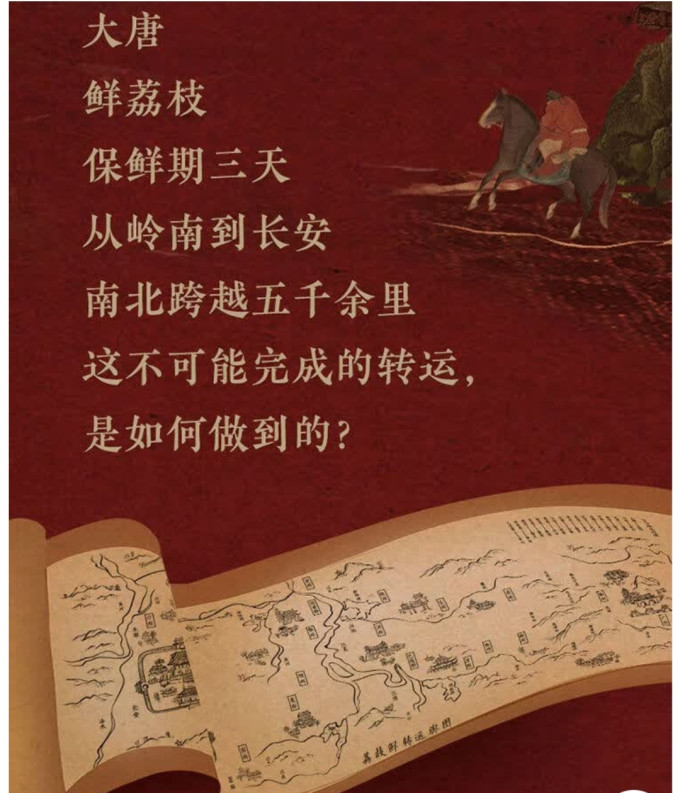 大唐
鲜荔枝
保鲜期三天
从岭南到长安
南北跨越五千余里
这不可能完成的转运，
是如何做到的？
荔枝鲜转运舆图